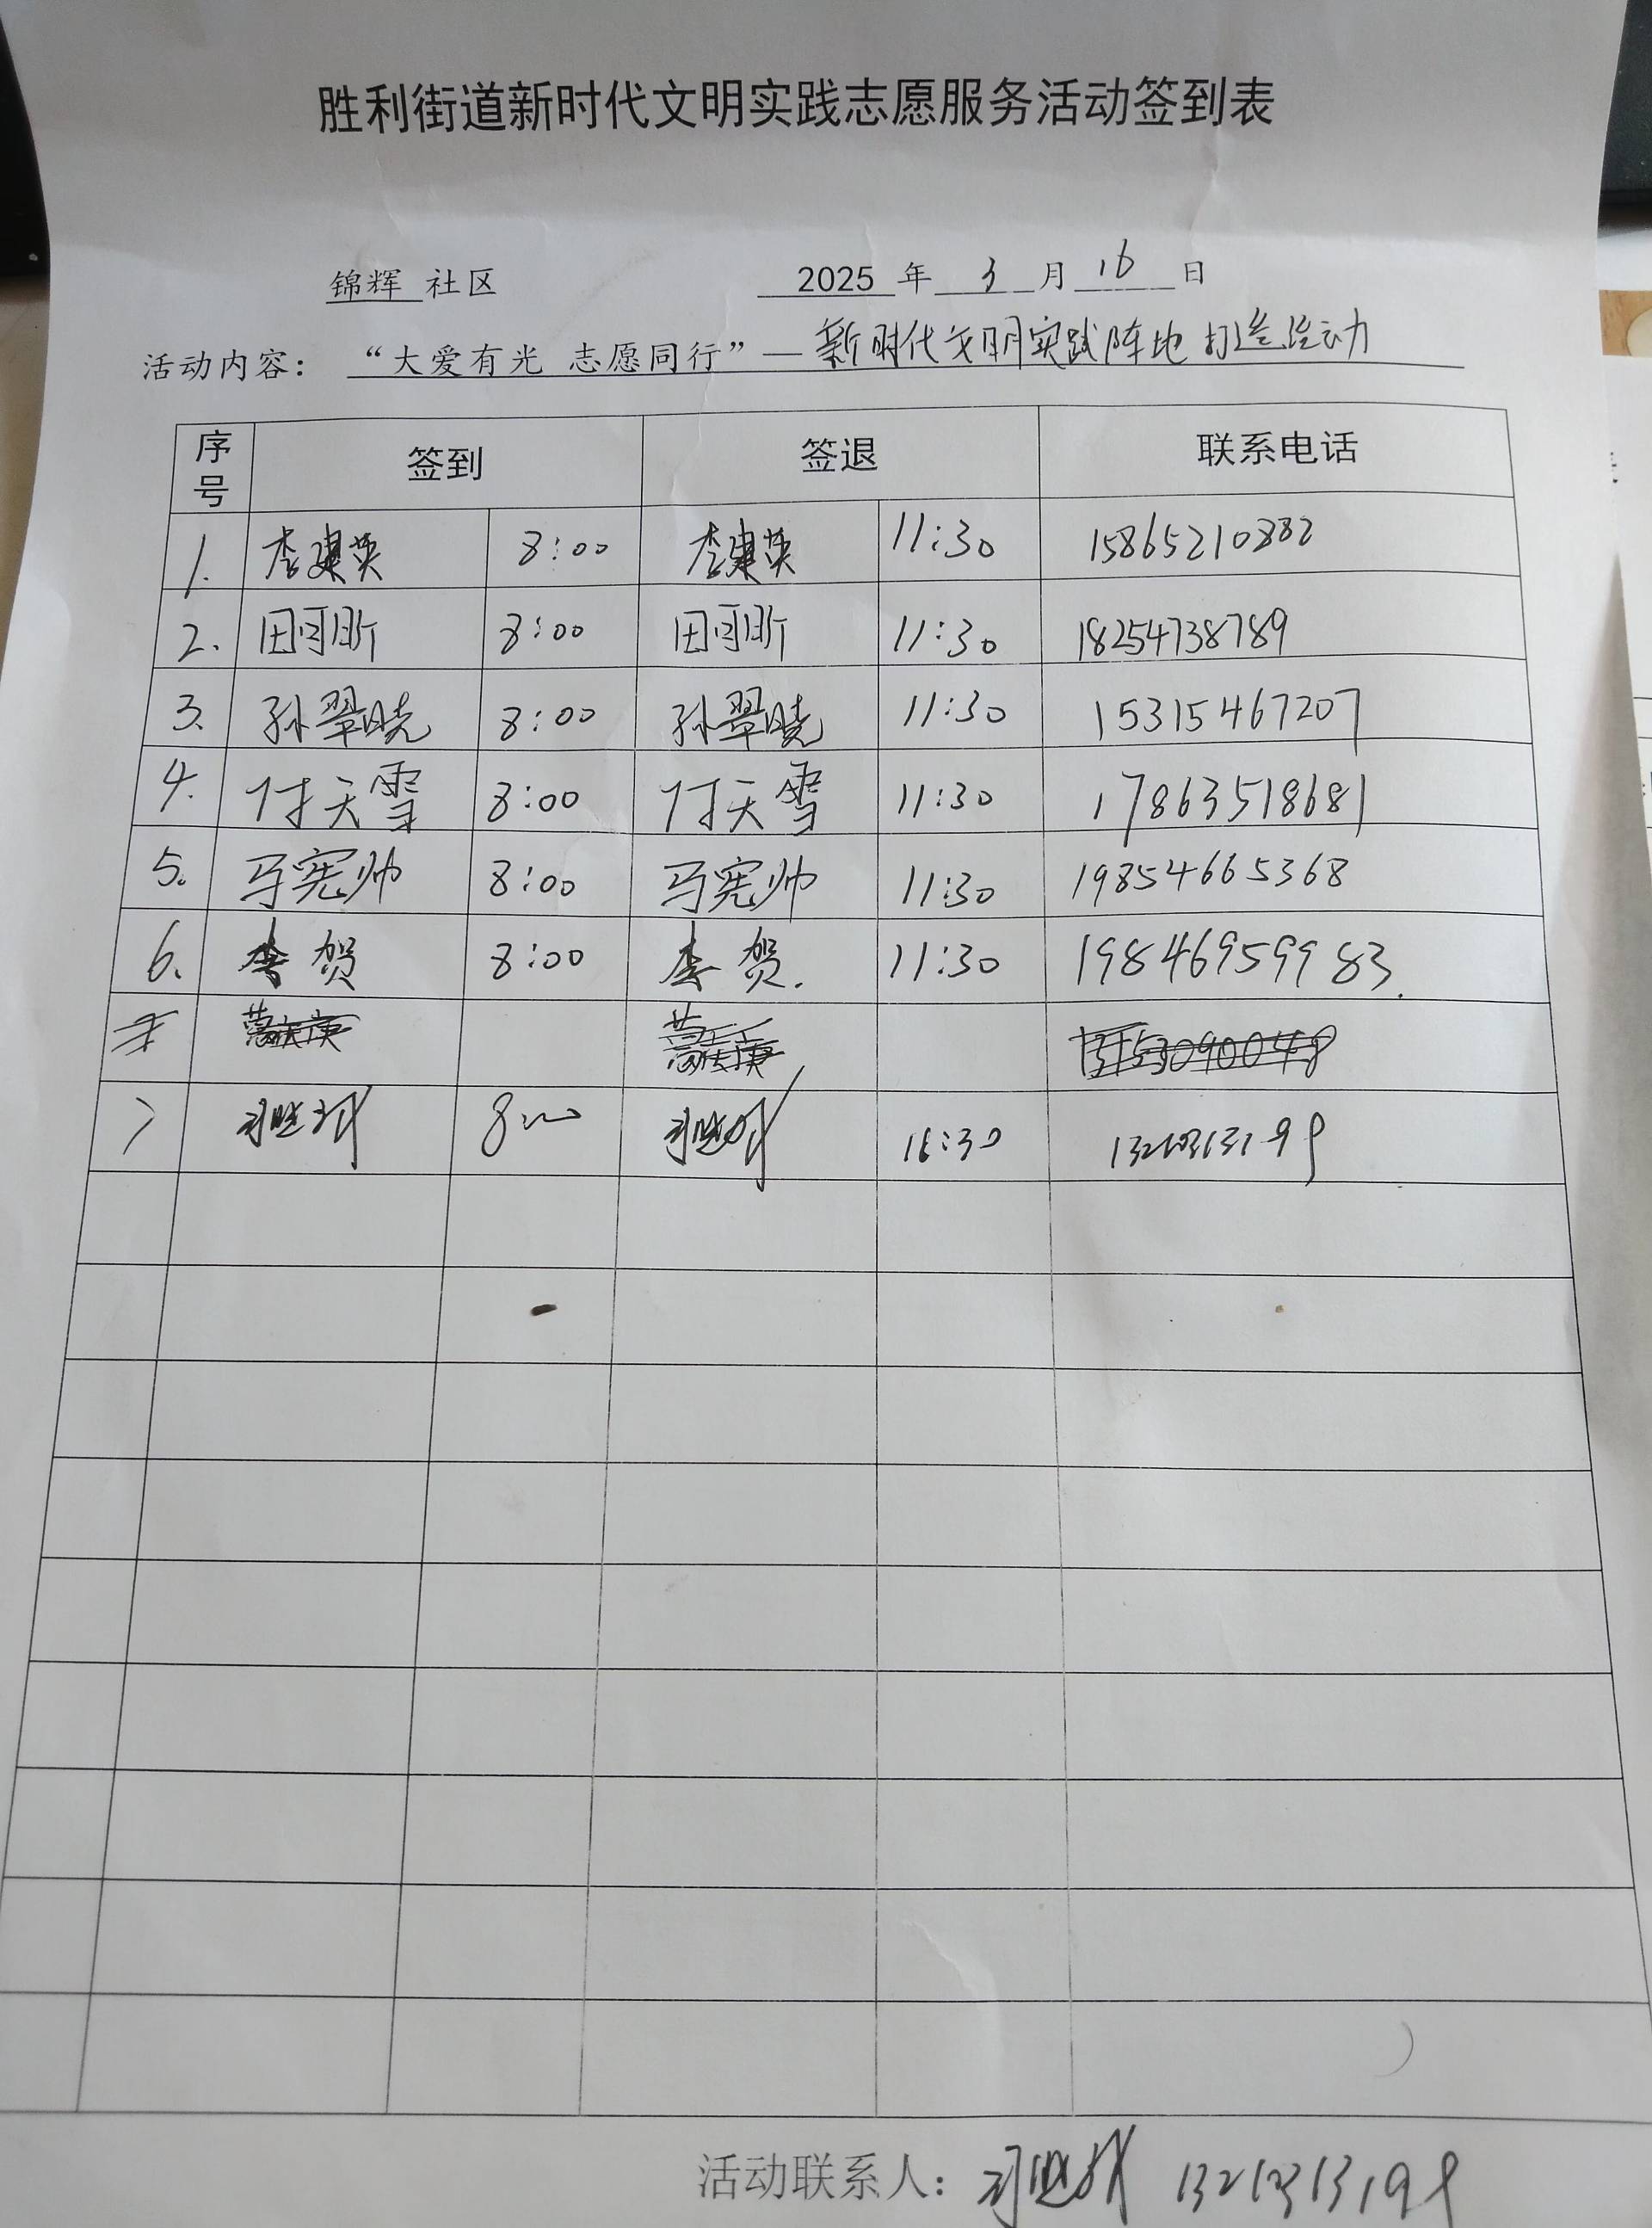 胜利街道新时代文明实践志愿服务活动签到表
锦辉 社区 2025 年 3 月 16 日
活动内容：“大爱有光 志愿同行”—新时代文明实践阵地打造活动
序号 签到 签退 联系电话
1. 李建英 8:00 李建英 11:30 15865210882
2. 田可昕 8:00 田可昕 11:30 18254738789
3. 孙翠晓 8:00 孙翠晓 11:30 15315467207
4. 付天雪 8:00 付天雪 11:30 17863518681
5. 马宪帅 8:00 马宪帅 11:30 19854665368
6. 李贺 8:00 李贺. 11:30 19846959983.
7 8:00 11:30
活动联系人：